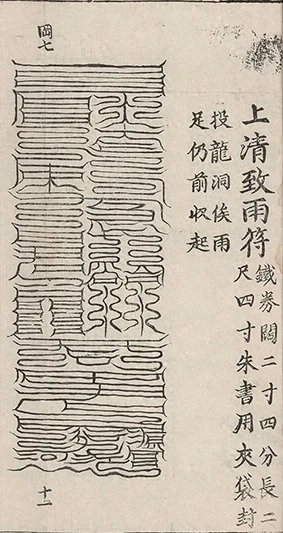 上清致雨符
鐵券闊二寸四分長二
尺四寸朱書用夾袋封
投龍洞俟雨
足仍前收起
岡七
十二